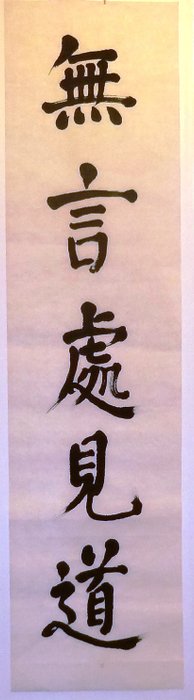 無言處見道